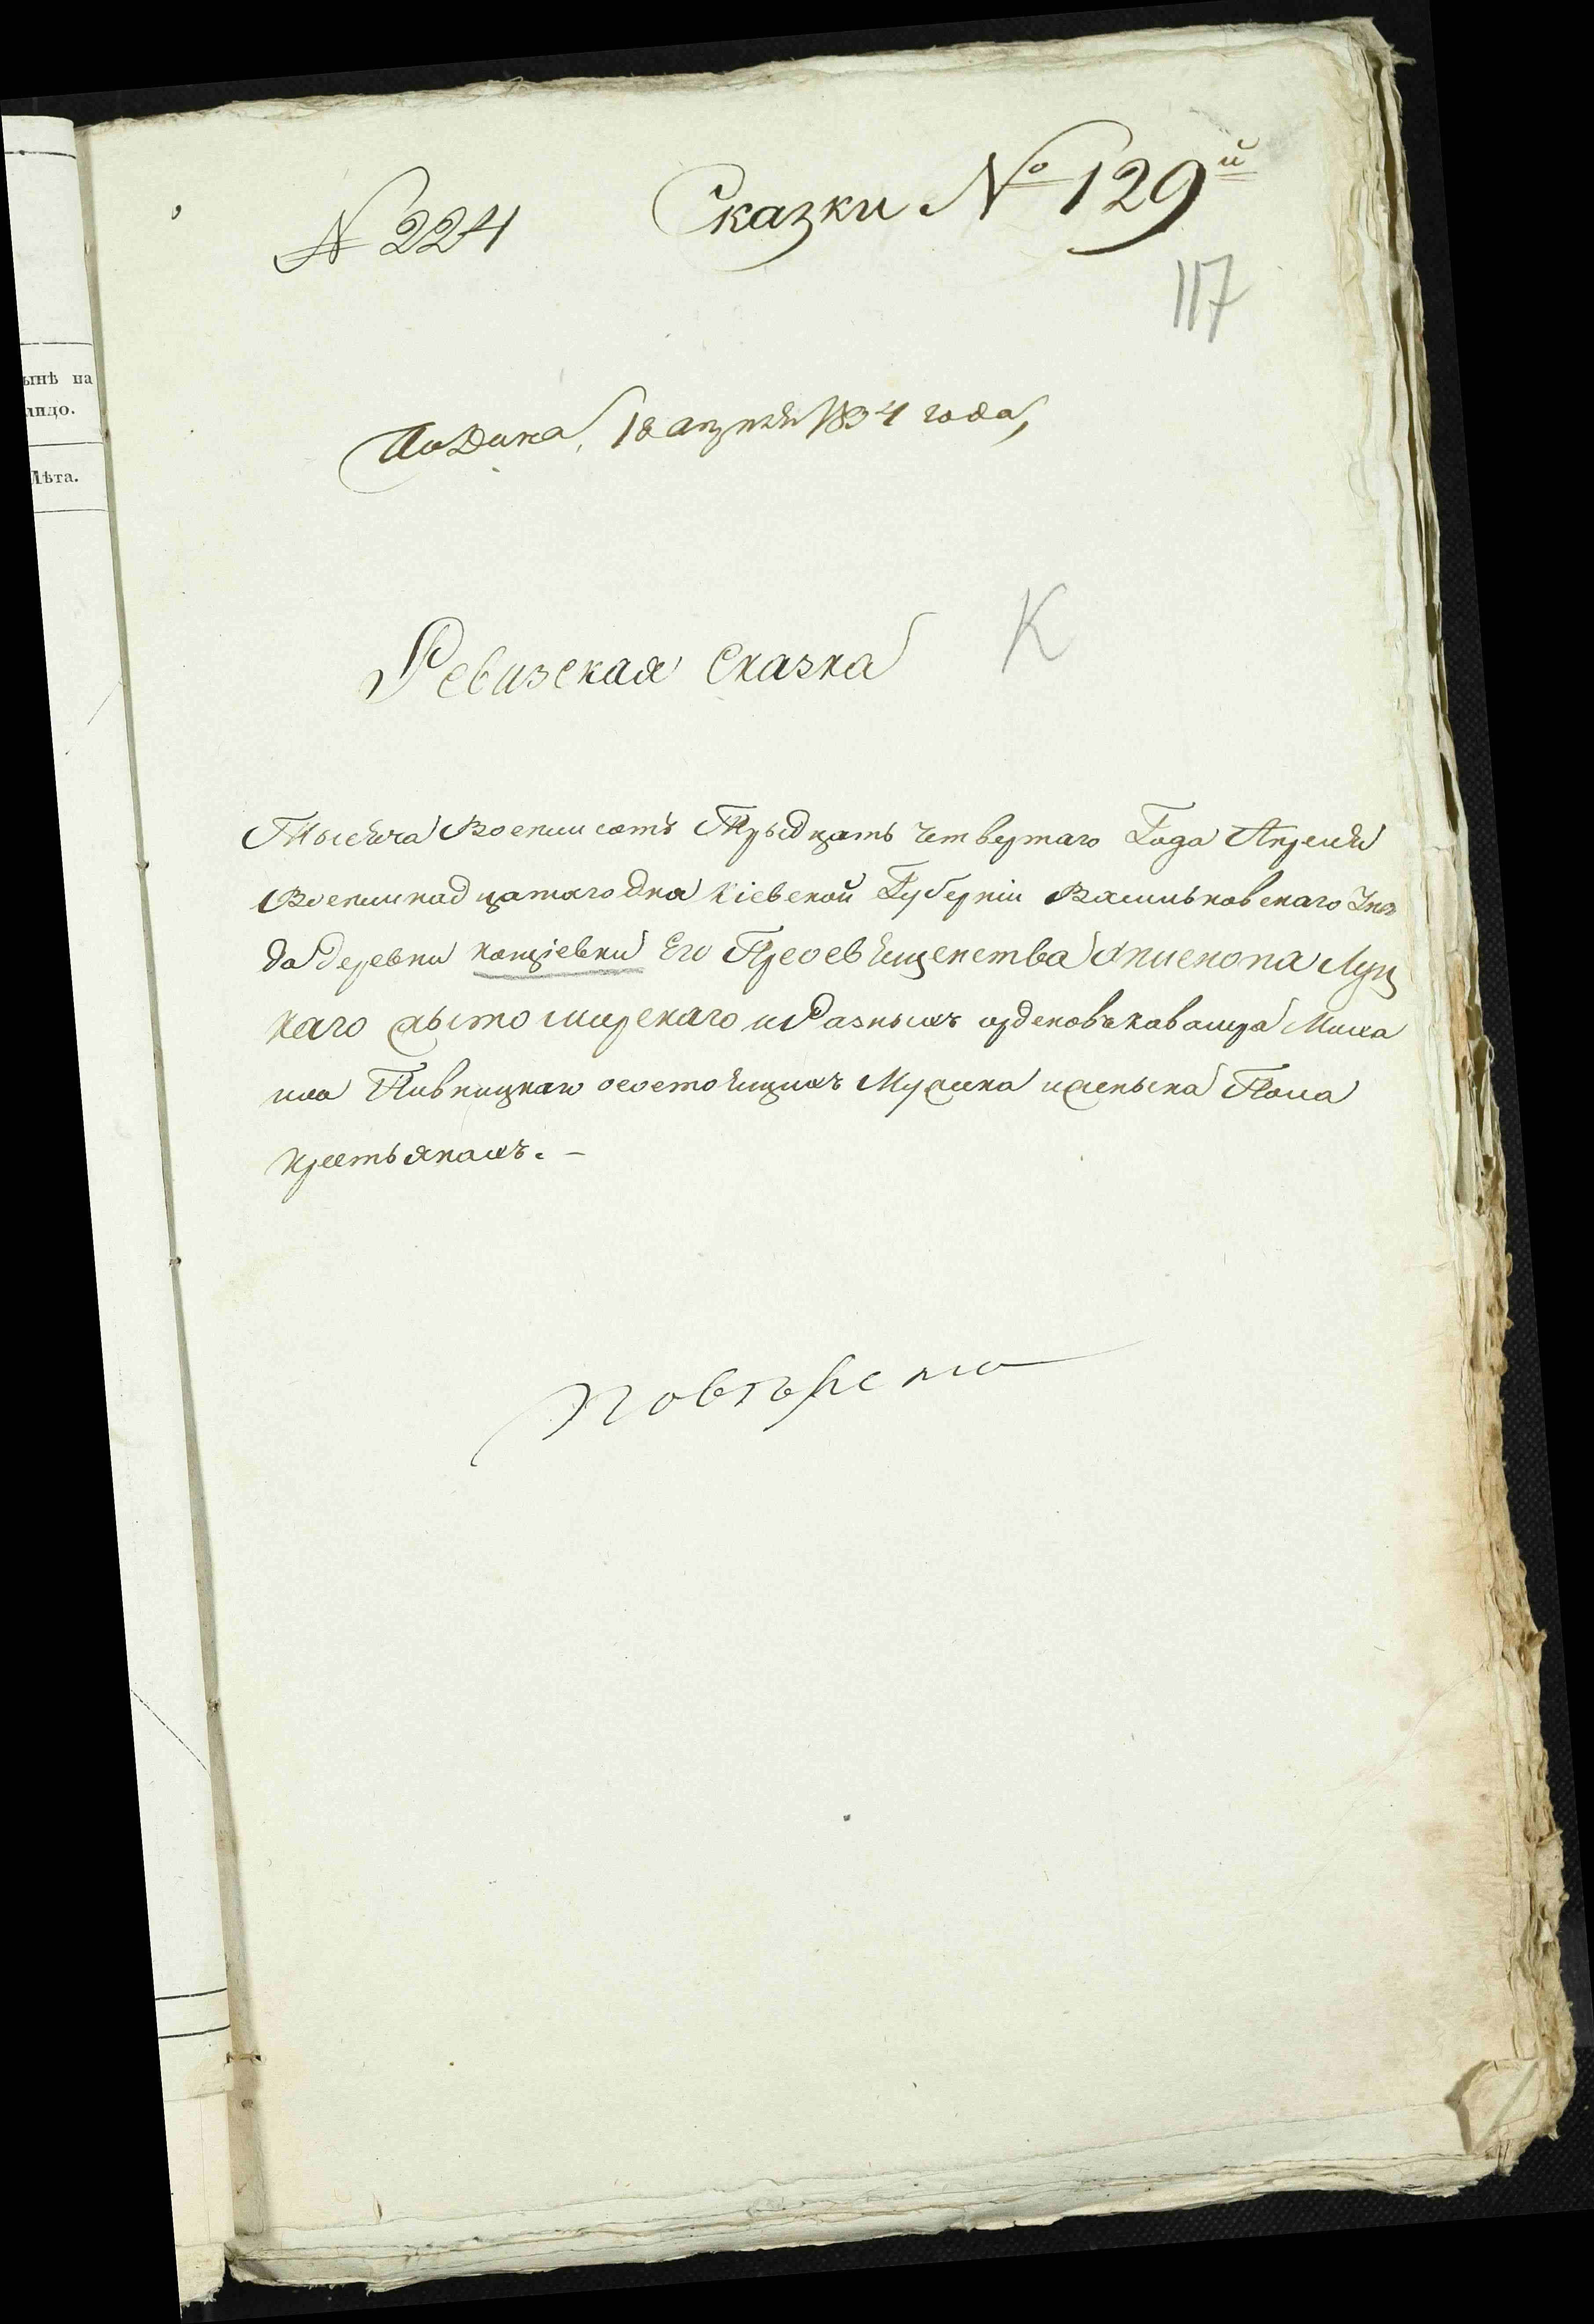 ынѣ на
лицо.
Лѣта.
№ 224
Сказки № 129й
117
Подана 18 апреля 1834 года
Ревизская сказка
К
Тысяча Восемсотъ Трыдцать четвертаго Года Апреля
Восемнадцатаго дня Кіевской Губерніи Васильковскаго Уез
да деревни Кощіевки Его Преосвященства Епископа Луц
каго Жытомирскаго и Разныхъ орденовъ кавалера Миха
ила Пивницкаго состоящихъ Мужска и женска Пола
крестьянахъ. –